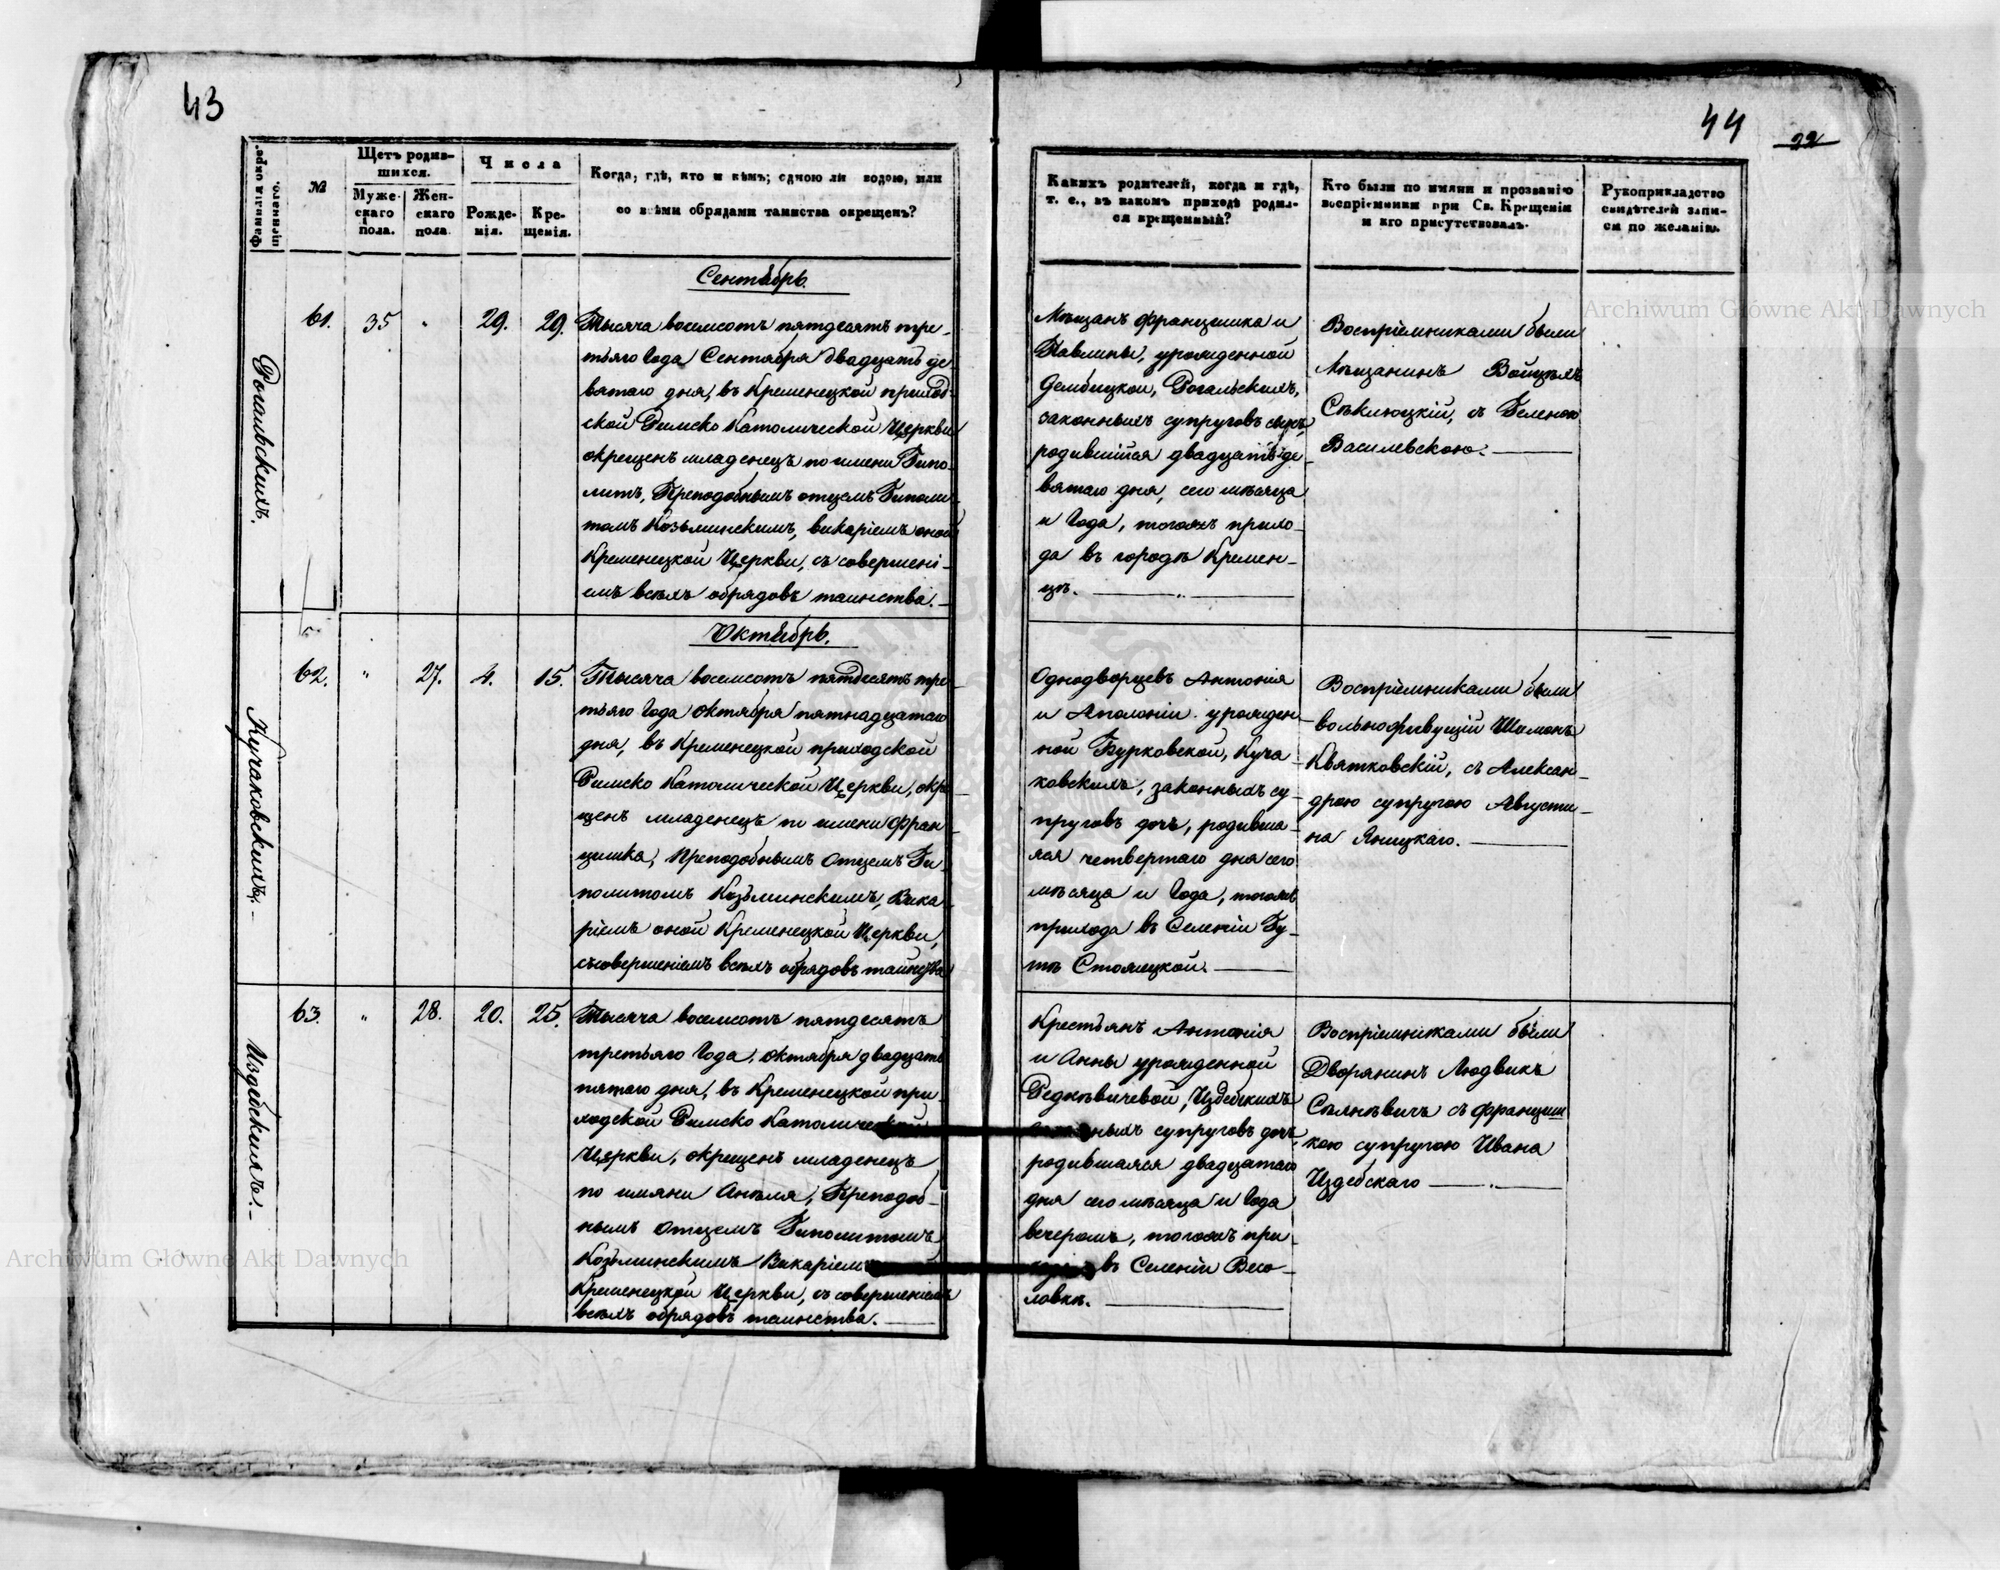 43
Фамилія окре-
щеннаго.
№
Щетъ родив-
шихся.
Муже-
скаго
пола.
Жен-
скаго
пола
Числа
Рожде-
нія.
Кре-
щенія.
Когда, где, кто и кѣмъ; одною ли водою, или
со всѣми обрядами таинства окрещенъ?
Сентябрь.
Рогальскихъ.
61.
35
"
29.
29.
Тысяча восемсотъ пятдесятъ тре-
тьяго Года Сентября двадцать де-
вятаго дня, въ Кременецкой приход-
ской Римско Католической Церкви
окрещенъ младенецъ по имени Гипо-
литъ, Преподобнымъ отцемъ Гиполи-
томъ Козьминскимъ, викаріемъ оной
Кременецкой Церкви, съ совершені-
емъ всѣхъ обрядовъ таинства.
Октябрь.
Кучаковскихъ.
62.
"
27.
4.
15.
Тысяча восемсотъ пятдесятъ тре-
тьяго Года октября пятнадцатаго
дня, въ Кременецкой приходской
Римско Католической Церкви, окре-
щенъ младенецъ по имени Фран-
цишка, Преподобнымъ Отцемъ Ги-
политомъ Козьминскимъ, Вика-
ріемъ оной Кременецкой Церкви,
съ совершеніемъ всѣхъ обрядовъ таинства
Издебскихъ.
63.
"
28.
20.
25.
Тысяча восемсотъ пятдесятъ
третьяго Года, октября двадцать
пятаго дня, въ Кременецкой при-
ходской Римско Католической
Церкви, окрещенъ младенецъ
по имяни Анѣля, Преподоб-
нымъ Отцемъ Гиполитомъ
Козьминскимъ Викаріем
Кременецкой Церкви, съ совершеніемъ
всѣхъ обрядовъ таинства.
44
22
Какихъ родителей, когда и где,
т. е., въ какомъ приходѣ родил-
ся крещенный?
Кто были по имяни и прозванію
воспріемники при Св. Крещеніи
и кто присутствовалъ.
Рукоприкладство
свидѣтелей запи-
си по желанію.
Мѣщанъ Францишка и
Павлины, урожденной
Дембицкой, Рогальскихъ,
законныхъ супруговъ сынъ,
родившійся двадцать де-
вятаго дня, сего мѣсяца
и Года, тогожъ прихо-
да въ городѣ Кремен-
цѣ.
Воспріемниками были
Мѣщанинъ Войцѣхъ
Сѣклюцкій, съ Геленою
Василевскою.
Однодворцевъ Антонія
и Аполоніи урожден-
ной Бурковской, Куча-
ковскихъ, законныхъ су-
пруговъ дочь, родивша-
яся четвертаго дня сего
мѣсяца и Года, тогожъ
прихода въ Селеніи Гу-
тѣ Стожецкой.
Воспріемниками были
вольноживущій Шимонъ
Квятковскій, съ Алексан-
дрою супругою Августи-
на Яницкаго.
Крестьянъ Антонія
и Анны урожденной
Редкѣвичевой, Издебскихъ
законныхъ супруговъ дочь,
родившаяся двадцатаго
дня сего мѣсяца и Года
вечеромъ, тогожъ при-
хода въ Селеніи Весо-
ловкѣ.
Воспріемниками были
Дворянинъ Людвикъ
Сѣлнѣвичъ съ Францишкою
кою супругою Ивана
Издебскаго
Archiwum Główne Akt Dawnych
Archiwum Główne Akt Dawnych